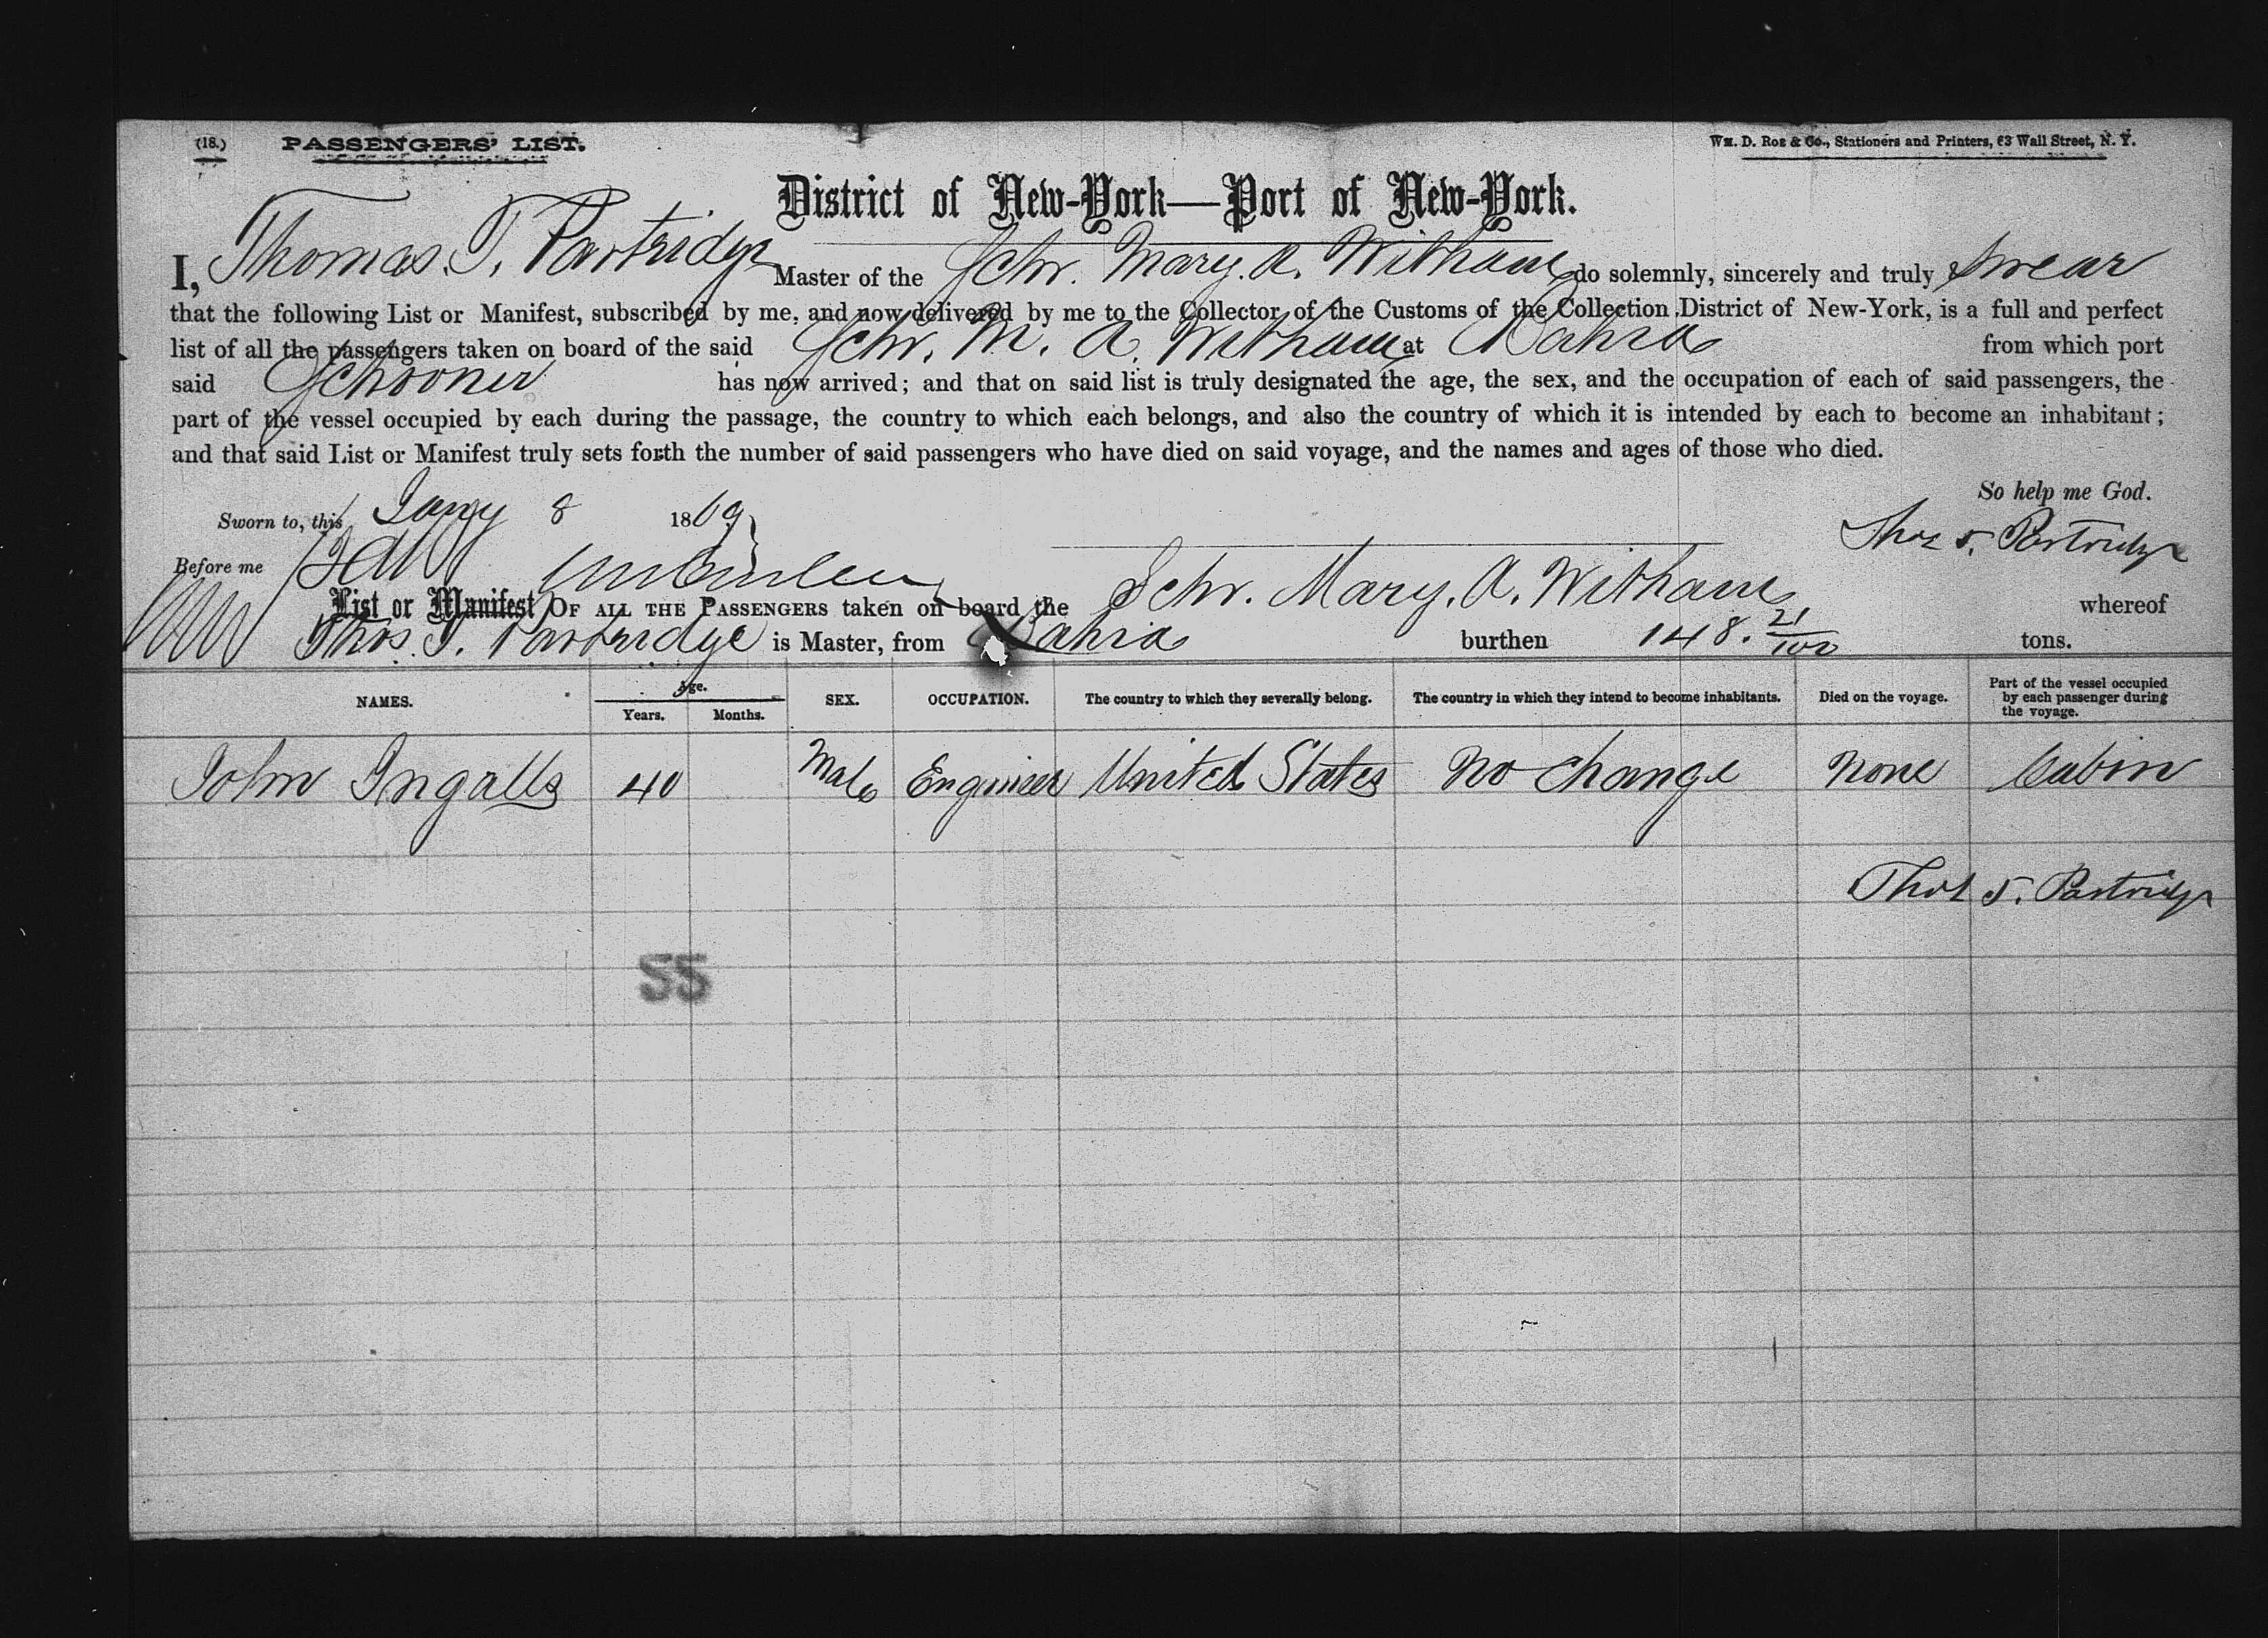 (18.) PASSENGERS' LIST. Wm. D. Roe & Co., Stationers and Printers, 63 Wall Street, N. Y.
District of New-York—Port of New-York.
I, Thomas. T. Partridge Master of the Schr. Mary. A. Witham do solemnly, sincerely and truly swear
that the following List or Manifest, subscribed by me, and now delivered by me to the Collector of the Customs of the Collection District of New-York, is a full and perfect
list of all the passengers taken on board of the said Schr. M. A. Witham at Bahia from which port
said Schooner has now arrived; and that on said list is truly designated the age, the sex, and the occupation of each of said passengers, the
part of the vessel occupied by each during the passage, the country to which each belongs, and also the country of which it is intended by each to become an inhabitant;
and that said List or Manifest truly sets forth the number of said passengers who have died on said voyage, and the names and ages of those who died.
So help me God.
Sworn to, this Jany 8 1869 Thos T. Partridge
Before me
List or Manifest OF ALL THE PASSENGERS taken on board the Schr. Mary. A. Witham whereof
Thos. T. Partridge is Master, from Bahia burthen 148. 21/100 tons.
NAMES. Age. Years. Months. SEX. OCCUPATION. The country to which they severally belong. The country in which they intend to become inhabitants. Died on the voyage. Part of the vessel occupied by each passenger during the voyage.
John Ingalls 40 Male Engineer United States No change None Cabin
Thos T. Partridge
55